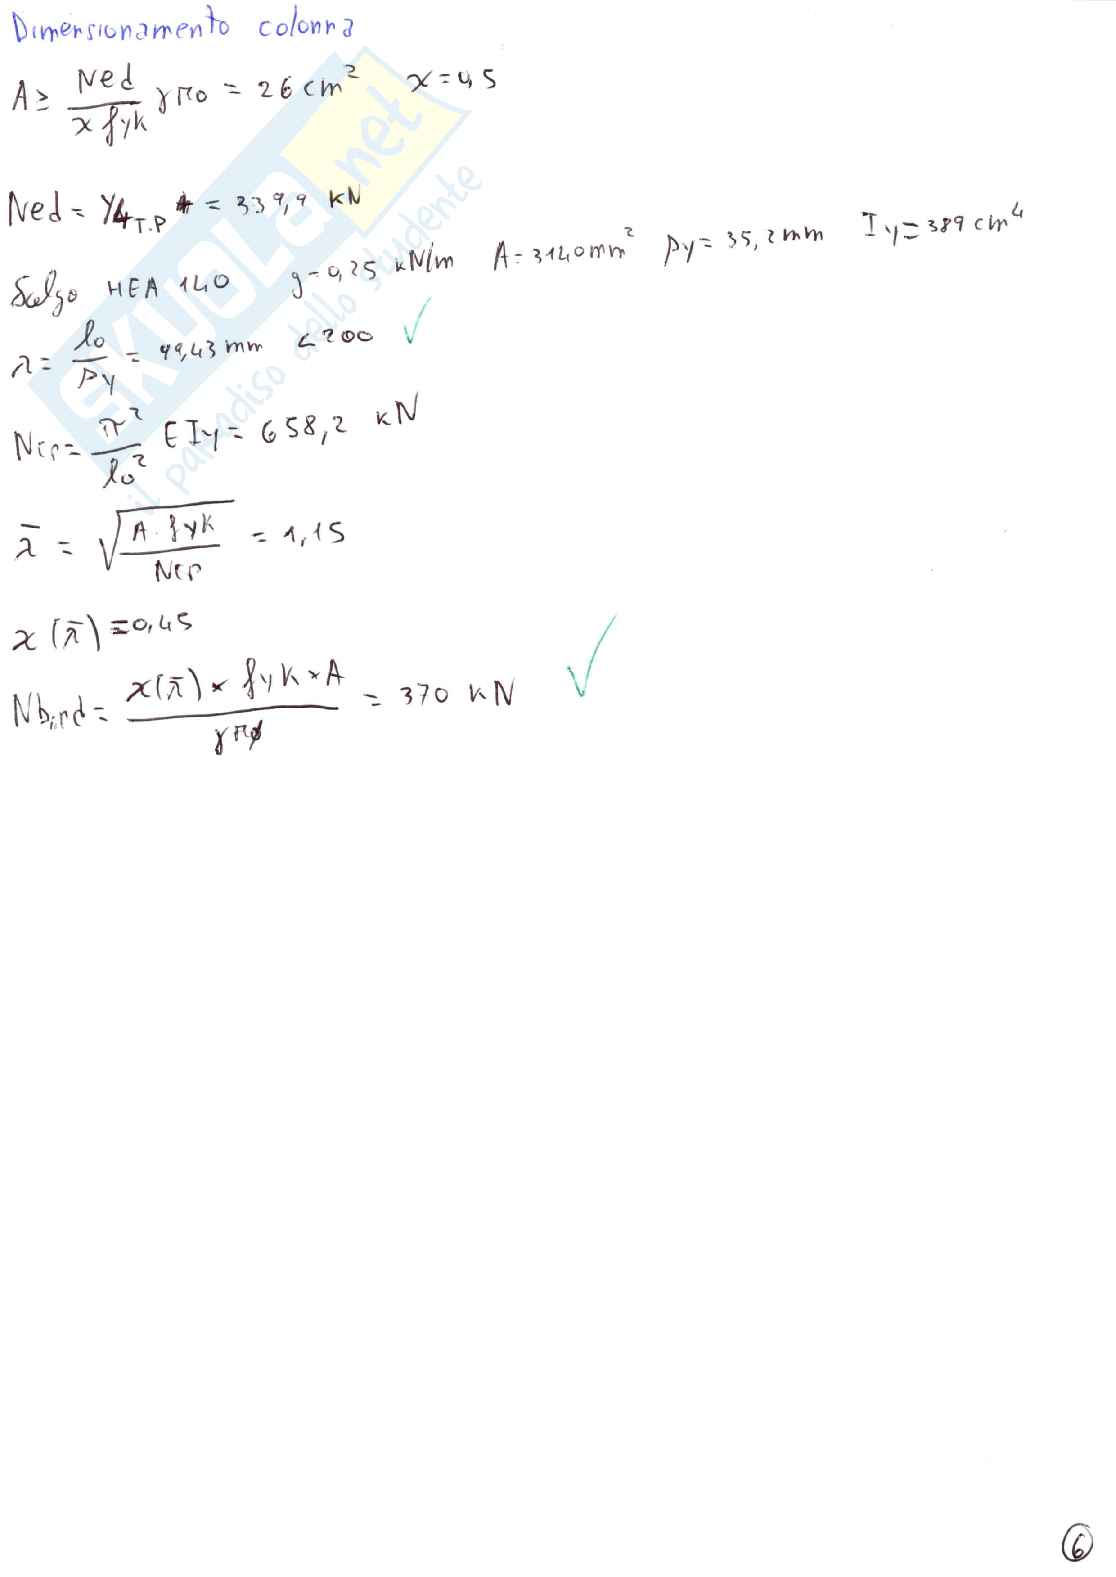 Dimensionamento colonna
A ≥ Ned / (x fyk) γM0 = 26 cm² x = 0,5
Ned = Y4 T.P = 339,9 kN
Scelgo HEA 140 g = 0,25 kN/m A = 3140 mm² ρy = 35,2 mm Iy = 389 cm⁴
λ = l0 / ρy = 99,43 mm < 200 ✓
Ncr = π² / l0² E Iy = 658,2 kN
λ̄ = √(A · fyk / Ncr) = 1,15
x (λ̄) = 0,45
Nb,rd = x(λ̄) × fyk × A / γM = 370 kN ✓
SKUOLA.net
il paradiso dello studente
6